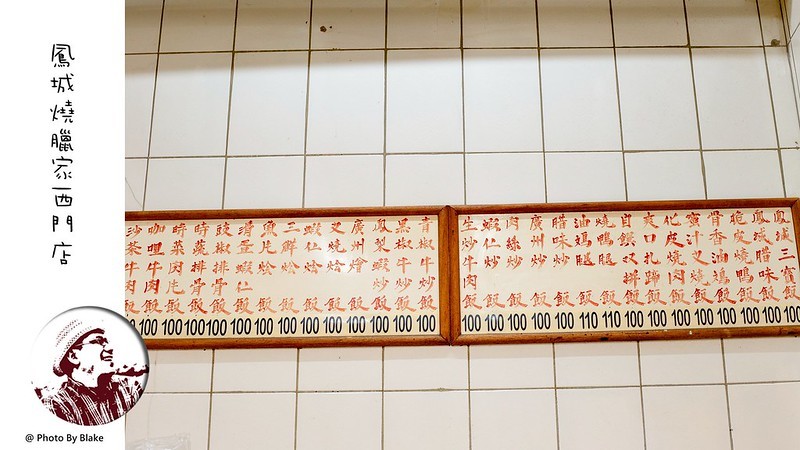 鳳城燒臘家西門店
鳳城三寶飯 100
鳳城臘味飯 100
脆皮燒鴨飯 100
骨香油鷄飯 100
蜜汁叉燒飯 100
化皮燒肉飯 100
爽口扎蹄飯 100
自選双拼飯 100
燒鴨腿飯 110
油鷄腿飯 110
臘味炒飯 100
廣州炒飯 100
肉絲炒飯 100
蝦仁炒飯 100
生炒牛肉飯 100
青椒牛炒飯 100
黑椒牛炒飯 100
鳳梨蝦炒飯 100
廣州燴飯 100
叉燒燴飯 100
蝦仁燴飯 100
三鮮燴飯 100
魚片燴飯 100
滑蛋蝦仁飯 100
豉椒排骨飯 100
時蔬排骨飯 100
時菜肉片飯 100
咖哩牛肉飯 100
沙茶牛肉飯 100
@ Photo By Blake